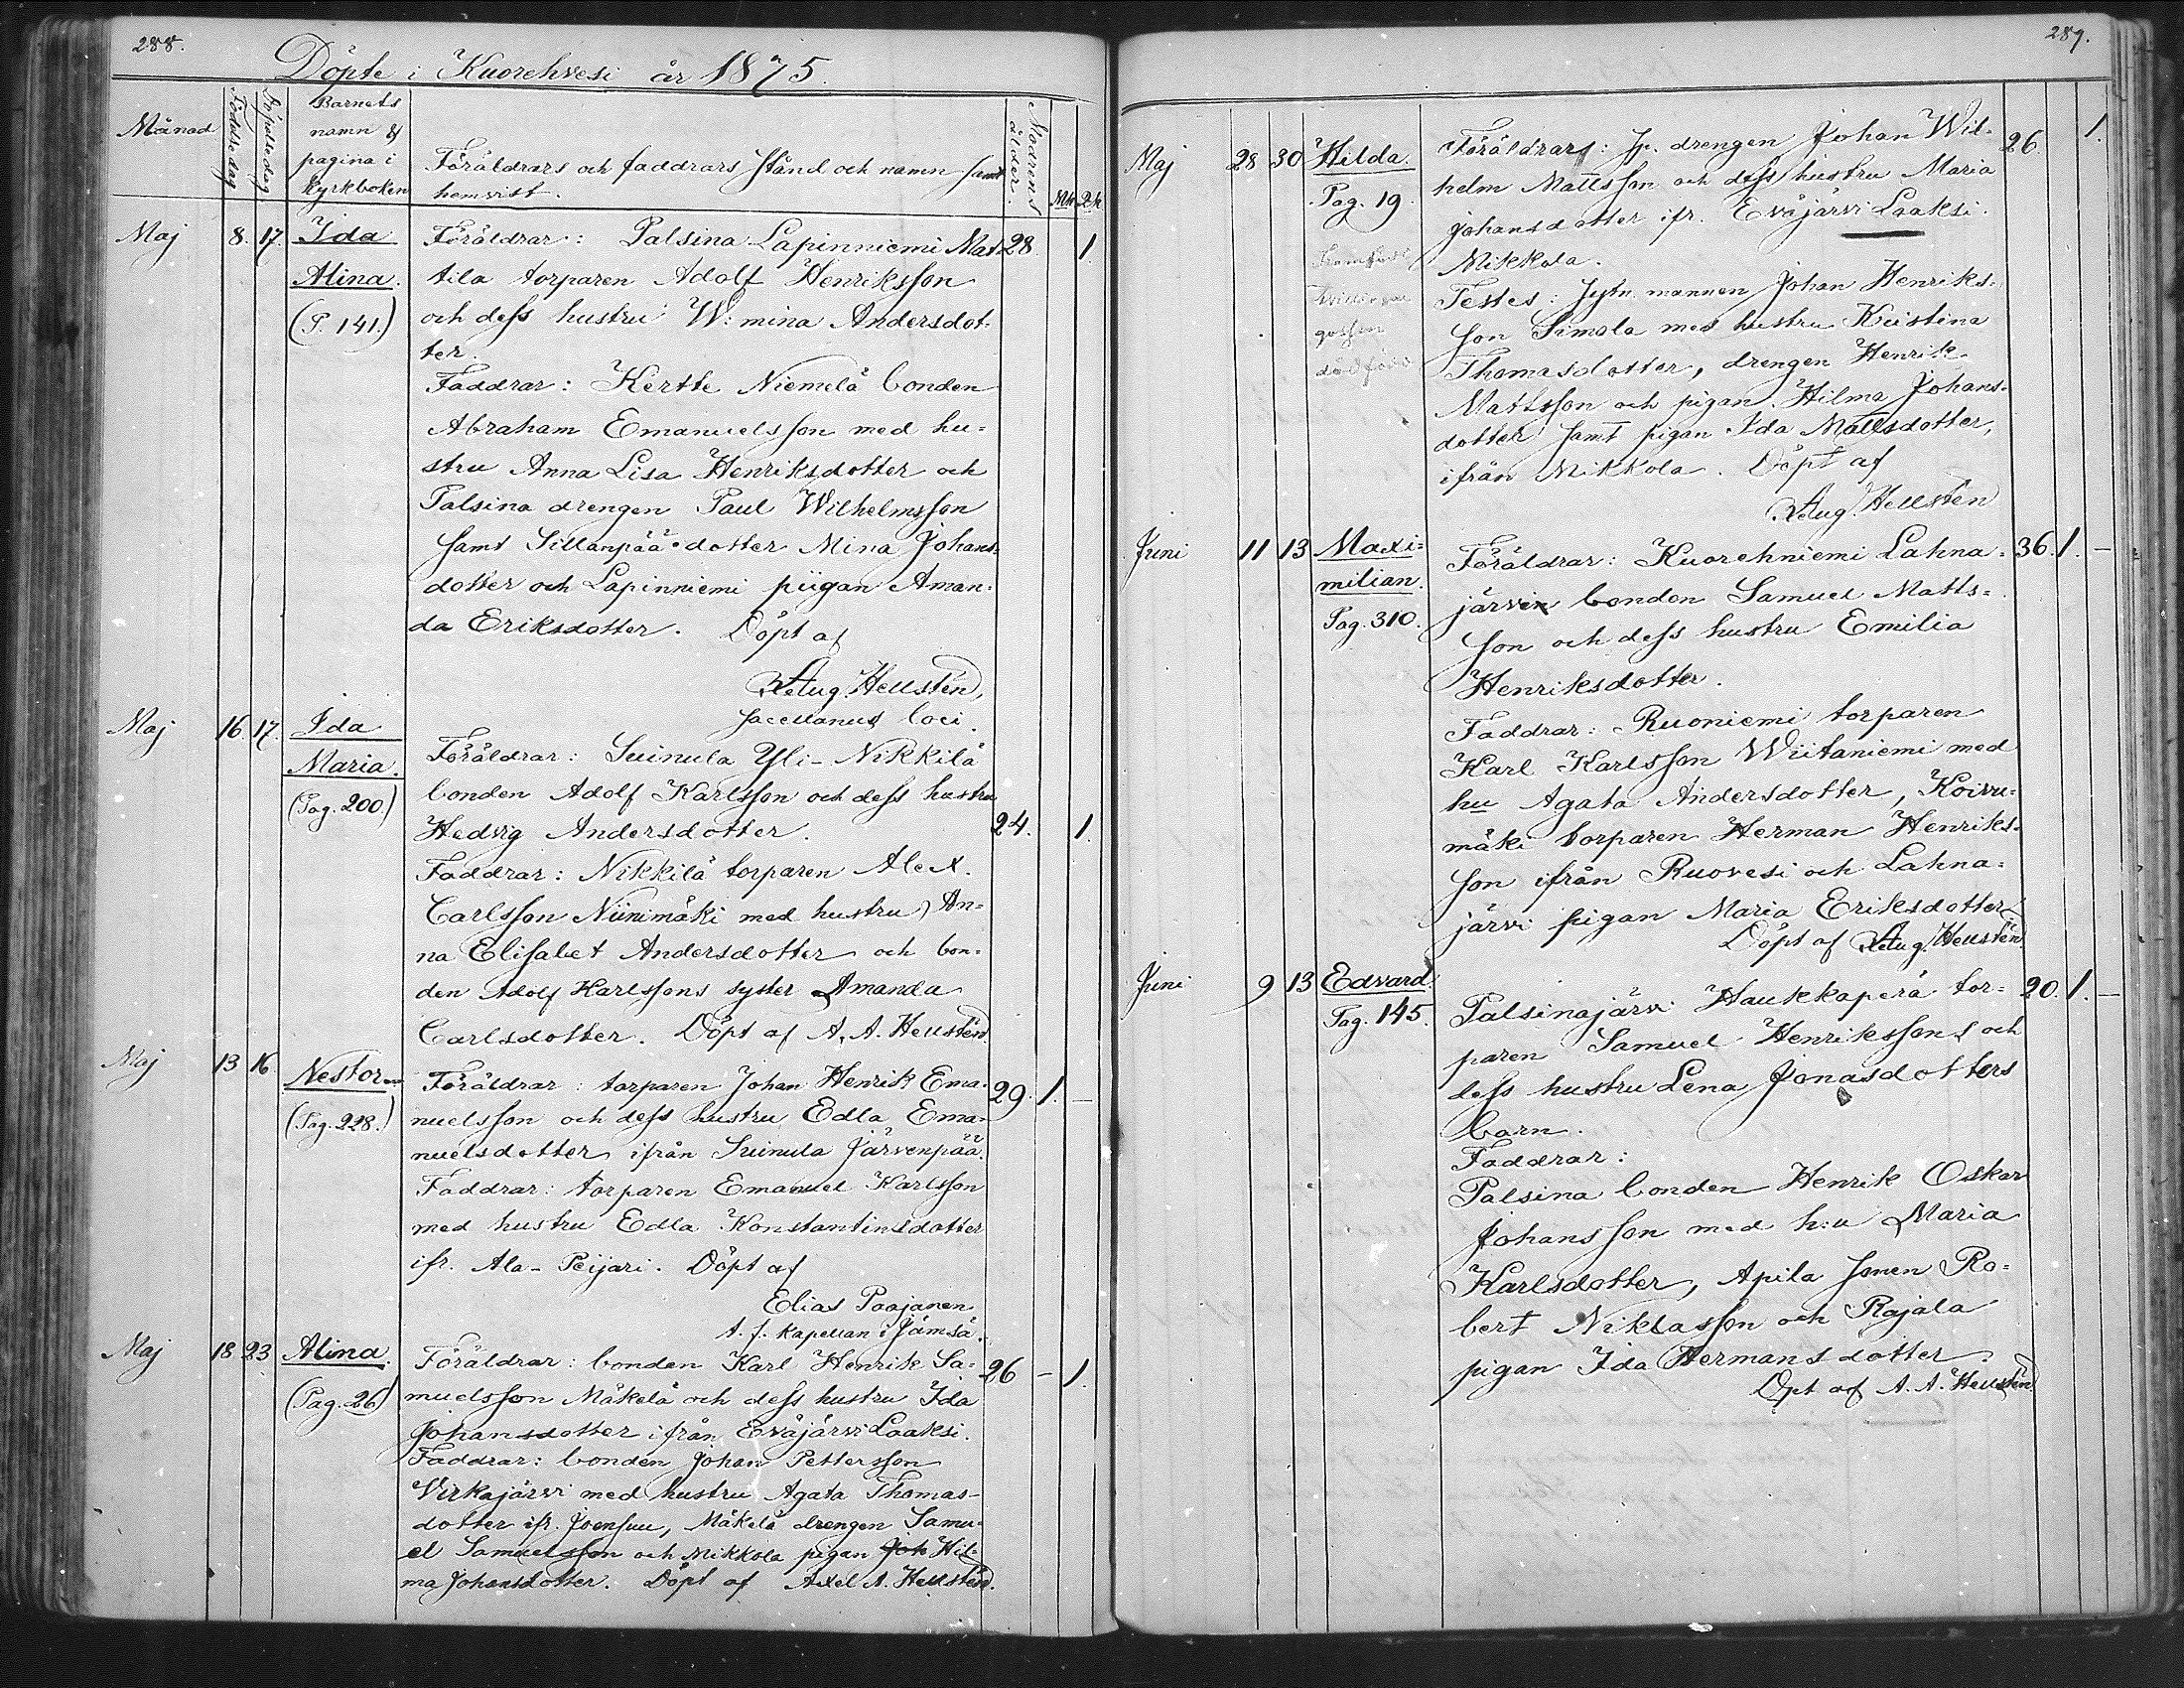 288.
Döpte i Kuorehvesi år 1875.
Månad
Födelsedag
Döpelsedag
Barnets
namn &
pagina i
kyrkboken
Föräldrars och faddrars stånd och namn samt
hemvist.
Modrens
ålder.
Mk Qk
Maj 8. 17. Ida
Alina.
(P. 141.)
Föräldrar: Palsina Lapinniemi Mat- 28. 1
tila torparen Adolf Henriksson
och dess hustru W:mina Andersdot-
ter.
Faddrar: Kertte Niemelä bonden
Abraham Emanuelsson med hu-
stru Anna Lisa Henriksdotter och
Palsina drengen Paul Wilhelmsson
samt Sillanpää dotter Mina Johans-
dotter och Lapinniemi piigan Aman-
da Eriksdotter. Döpt af
Aug. Hellstén,
sacellanus loci.
Maj 16. 17. Ida
Maria.
(Pag. 200.)
Föräldrar: Suinula Yli-Nikkilä
bonden Adolf Karlsson och dess hustru
Hedvig Andersdotter. 24. 1.
Faddrar: Nikkilä torparen Alex.
Carlsson Niinimäki med hustru An-
na Elisabet Andersdotter och bon-
den Adolf Karlssons syster Amanda
Carlsdotter. Döpt af A. A. Hellstén
Maj 13 16 Nestor
(Pag. 228.)
Föräldrar: torparen Johan Henrik Ema- 29. 1. —
nuelsson och dess hustru Edla Ema-
nuelsdotter ifrån Suinula Järvenpää.
Faddrar: torparen Emanuel Karlsson
med hustru Edla Konstantinsdotter
ifr. Ala-Peijari. Döpt af
Elias Paajanen
A. f. Kapellan i Jämsä.
Maj 18 23 Alina.
(Pag. 26)
Föräldrar: bonden Karl Henrik Sa- 26 — 1.
muelsson Mäkelä och dess hustru Ida
Johansdotter ifrån Eväjärvi Laaksi.
Faddrar: bonden Johan Pettersson
Virkajärvi med hustru Agata Thomas-
dotter ifr. Joensuu, Mäkelä drengen Samu-
el Samuelsson och Mikkola pigan Joh Hil-
ma Johansdotter. Döpt af Axel A. Hellstén.
289.
Maj 28 30 Hilda.
Pag. 19.
Tvillingar
gossen
dödfödd
Föräldrars: Jp. drengen Johan Wil- 26 1.
helm Mattsson och dess hustru Maria
Johansdotter ifr. Eväjärvi Laaksi
Mikkola.
Testes: Jytn. mannen Johan Henriks-
son Simola med hustru Kristina
Thomasdotter, drengen Henrik
Mattsson och pigan Hilma Johans-
dotter samt pigan Ida Mattsdotter,
ifrån Mikkola. Döpt af
Aug. Hellstén
Juni 11 13 Maxi-
milian.
Pag. 310.
Föräldrar: Kuorehniemi Lahna- 36. 1. —
järvi bonden Samuel Matts-
son och dess hustru Emilia
Henriksdotter.
Faddrar: Ruoniemi torparen
Karl Karlsson Wiitaniemi med
hu Agata Andersdotter, Koivu-
mäki torparen Herman Henriks-
son ifrån Ruovesi och Lahna-
järvi pigan Maria Eriksdotter
Döpt af Aug. Hellstén
Juni 9 13 Edvard.
Pag. 145.
Palsinajärvi Haukkaperä tor- 20. 1. —
paren Samuel Henrikssons och
dess hustru Lena Jonasdotters
barn.
Faddrar:
Palsina bonden Henrik Oskar
Johansson med h:u Maria
Karlsdotter, Apila sonen Ro-
bert Niklasson och Rajala
pigan Ida Hermansdotter.
Döpt af A. A. Hellstén